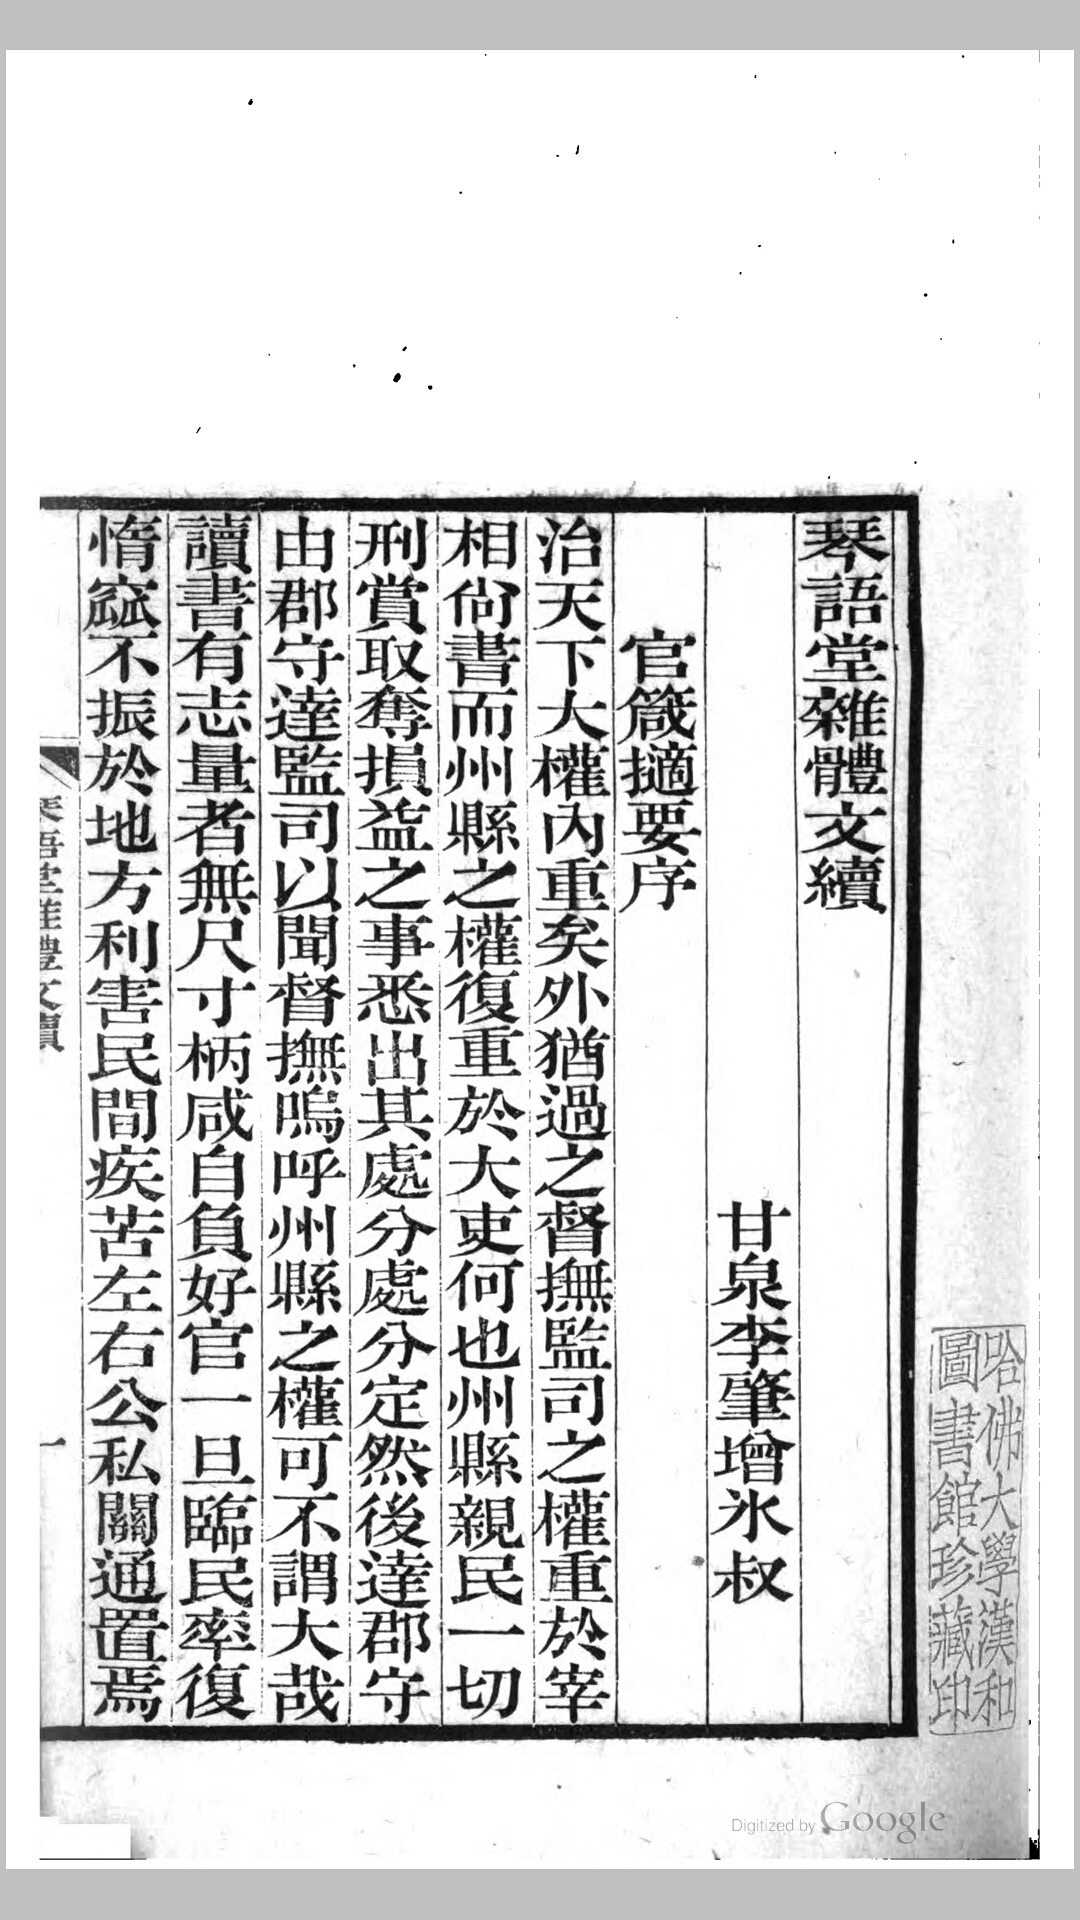 琴語堂雜體文續
甘泉李肇增氷叔
官箴擿要序
治天下大權內重矣外猶過之督撫監司之權重於宰
相尙書而州縣之權復重於大吏何也州縣親民一切
刑賞取奪損益之事悉出其處分處分定然後達郡守
由郡守達監司以聞督撫嗚呼州縣之權可不謂大哉
讀書有志量者無尺寸柄咸自負好官一旦臨民率復
惰窳不振於地方利害民間疾苦左右公私關通置焉
琴語堂雜體文續
一
哈佛大學漢和
圖書館珍藏印
Digitized by Google